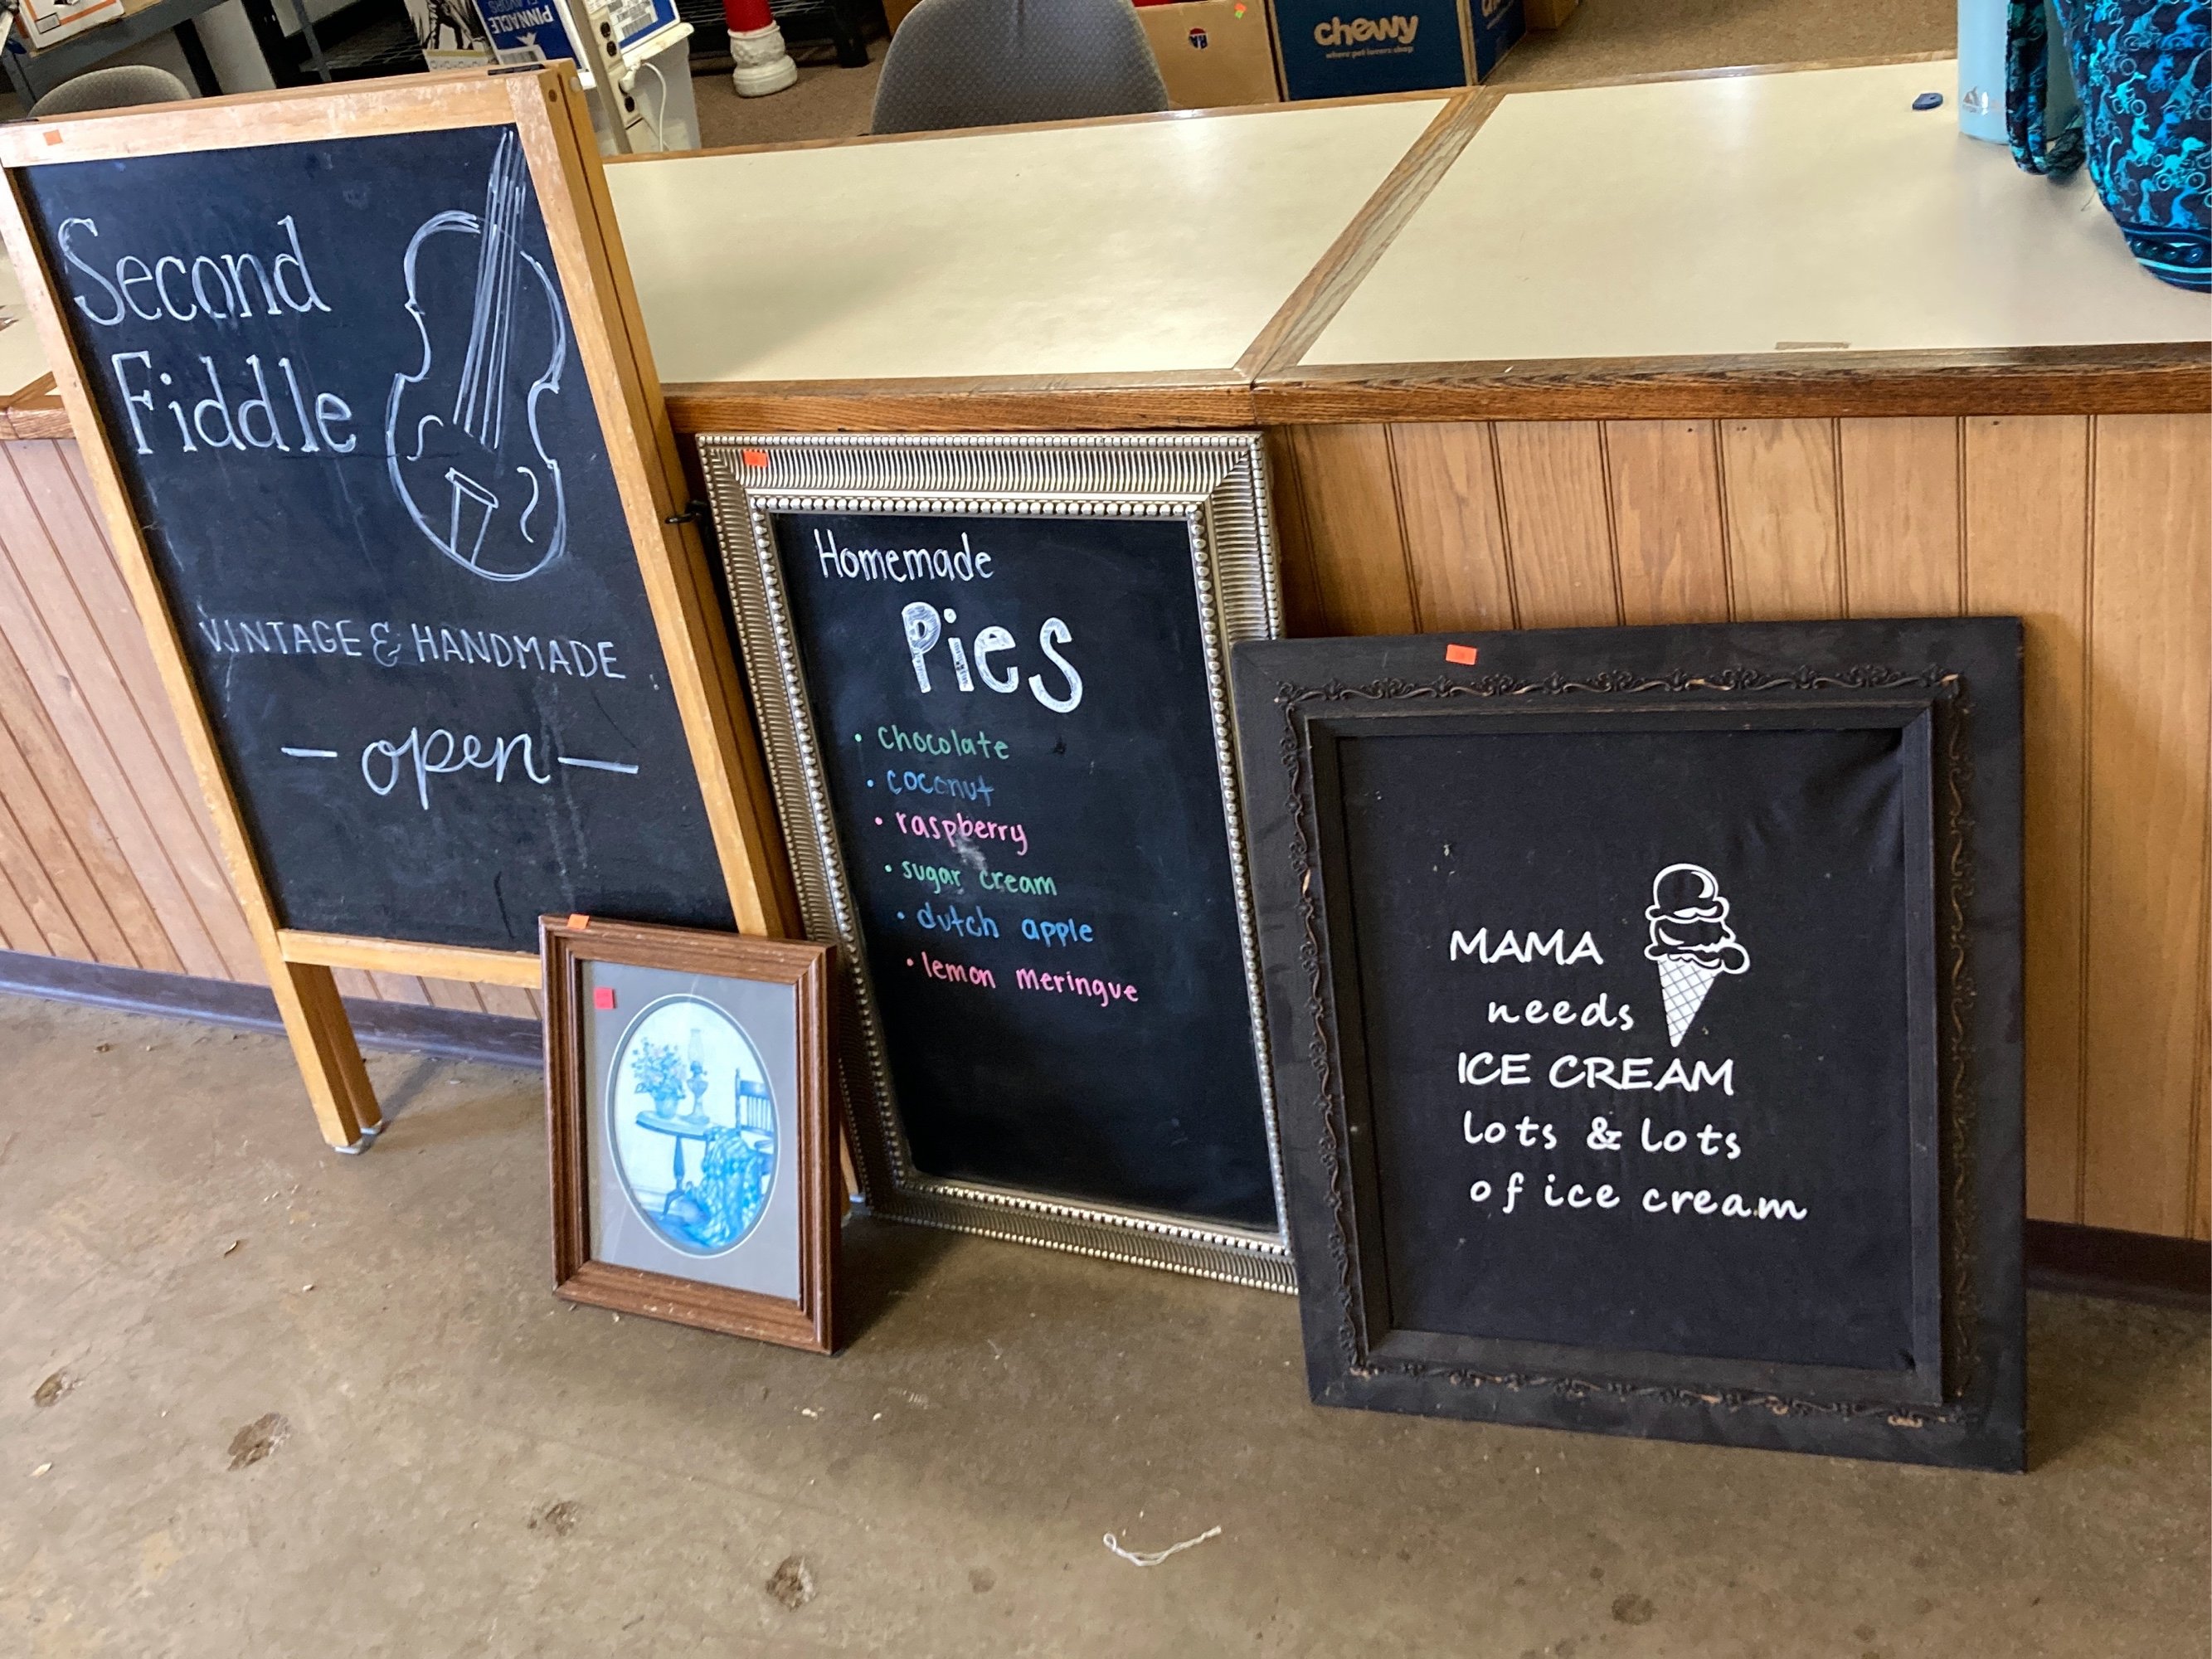 Second
Fiddle
VINTAGE & HANDMADE
— open —
Homemade
Pies
• chocolate
• coconut
• raspberry
• sugar cream
• dutch apple
• lemon meringue
MAMA
needs
ICE CREAM
lots & lots
of ice cream
PINNACLE
chewy
where pet lovers shop